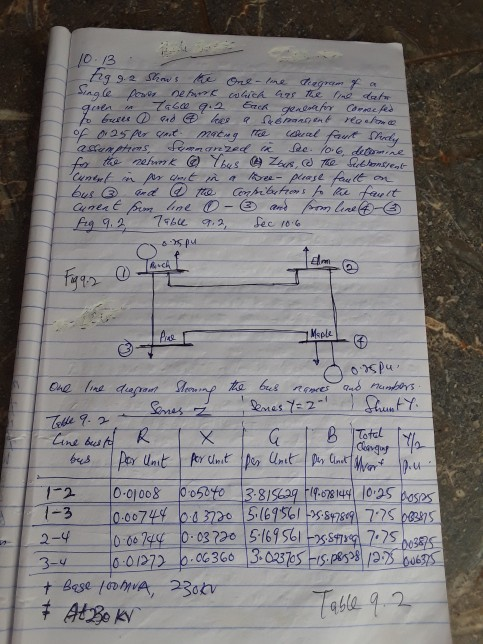 10.13
Fig 9.2 Shows the One-line diagram of a
Single power network which has the line data
given in Table 9.2 Each generator Connected
to buses ① and ④ has a Subtransient reactance
of 0.25 per unit. making the usual fault study
assumptions, Summarized in Sec. 10.6, determine
for the network (a) Ybus (b) Zbus, (c) the Subtransient
Current in per unit in a three-phase fault on
bus ③ and (d) the Contributions to the fault
Current from line ① - ③ and from line ④ - ③
Fig 9.2, Table 9.2, Sec 10.6
0.25pu
Fig 9.2 ① Birch Elm ②
③ Pine Maple ④
0.25pu.
One line diagram Showing the bus names and numbers.
Table 9.2 Series Z Series Y=Z⁻¹ Shunt Y.
Line bus to bus R Per Unit X Per Unit G per Unit B per Unit Total Charging Mvar Y/2 p.u.
1-2 0.01008 0.05040 3.815629 -19.078144 10.25 0.05125
1-3 0.00744 0.03720 5.169561 -25.847809 7.75 0.03875
2-4 0.00744 0.03720 5.169561 -25.847809 7.75 0.03875
3-4 0.01272 0.06360 3.023705 -15.118528 12.75 0.06375
+ Base 100MVA, 230kV
‡ At 230 kV
Table 9.2